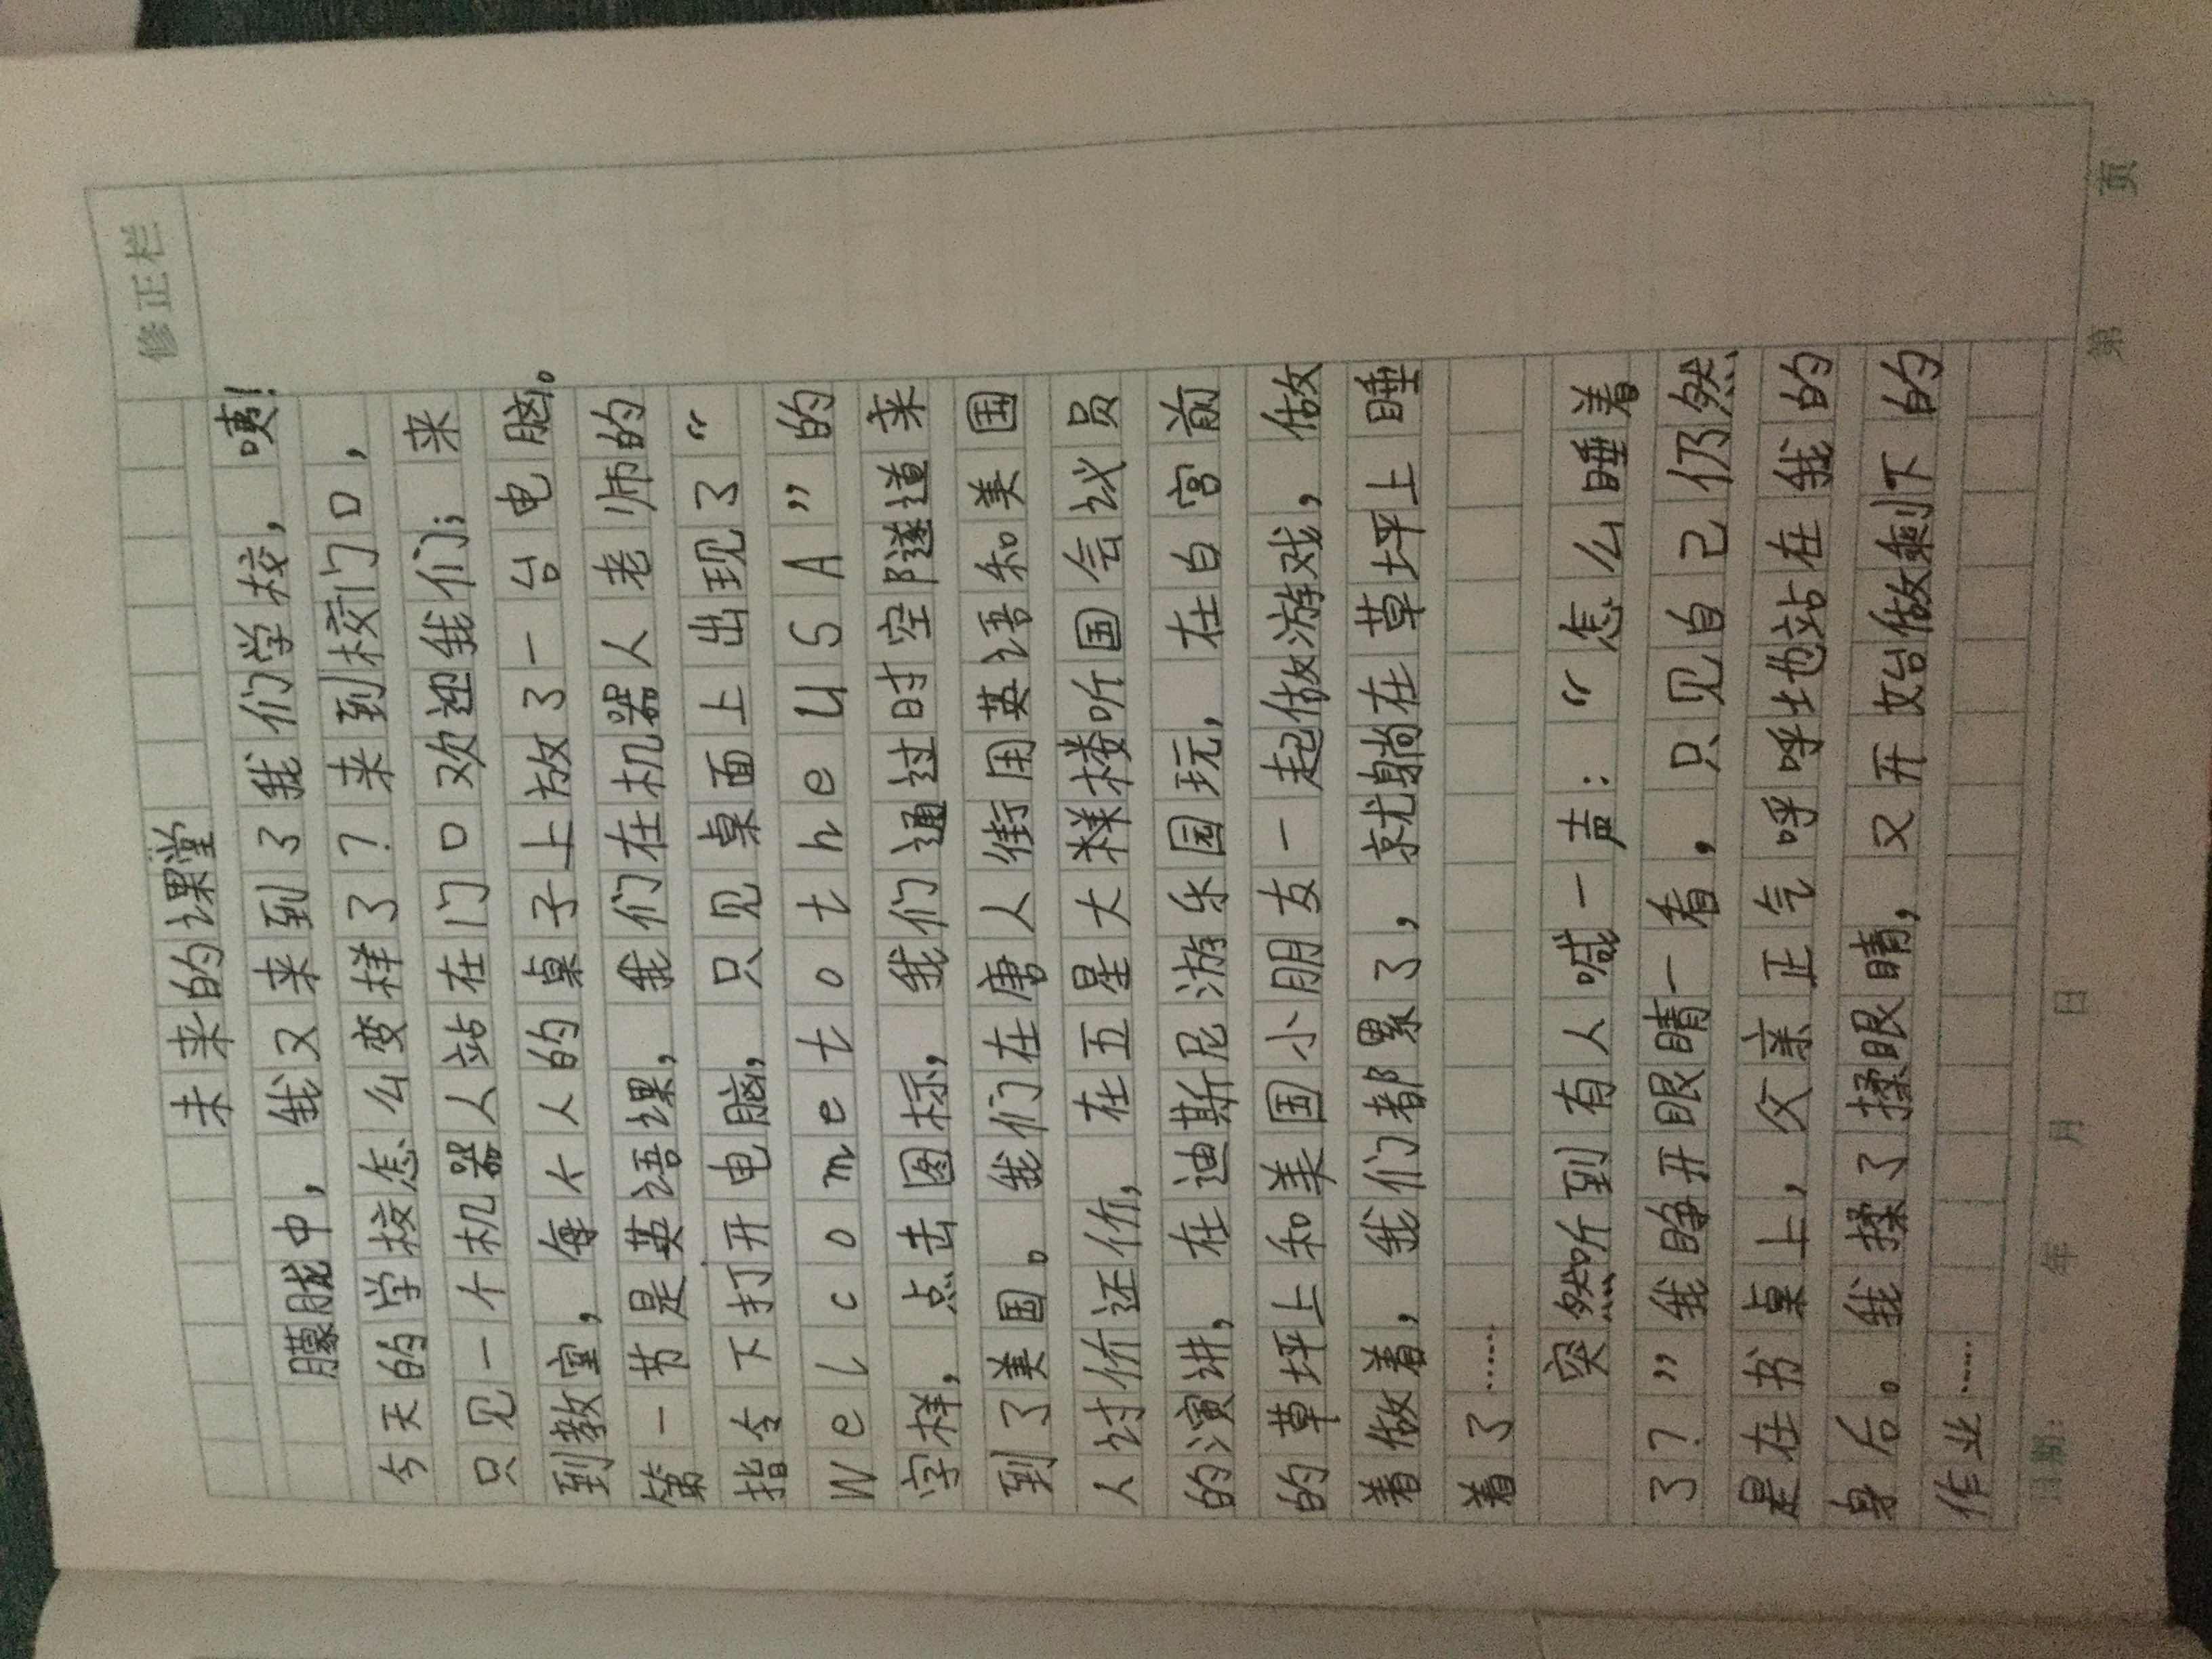 修正栏
未来的课堂
朦胧中，我又来到了我们学校，咦！
今天的学校怎么变样了？来到校门口，
只见一个机器人站在门口欢迎我们；来
到教室，每个人的桌子上放了一台电脑。
第一节是英语课，我们在机器人老师的
指令下打开电脑，只见桌面上出现了“
WelcometotheusA”的
字样，点击图标，我们通过时空隧道来
到了美国。我们在唐人街用英语和美国
人讨价还价，在五星大楼听国会议员
的演讲，在迪斯尼游乐园玩，在白宫前
的草坪上和美国小朋友一起做游戏，做
着做着，我们都累了，就躺在草坪上睡
着了……
突然听到有人喊一声：“怎么睡着
了？”我睁开眼睛一看，只见自己仍然
是在书桌上，父亲正气呼呼地站在我的
身后。我揉了揉眼睛，又开始做剩下的
作业……
日期： 年 月 日 第 页